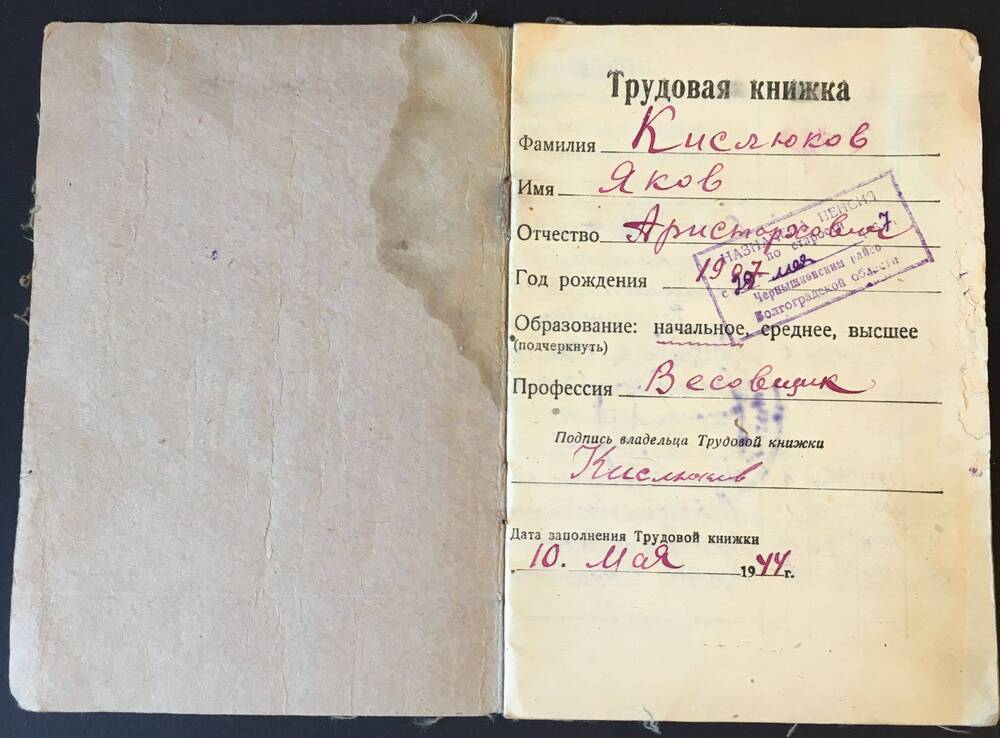 Трудовая книжка
Фамилия Кислюков
Имя Яков
Отчество Аристархович
Год рождения 1907
Образование: начальное, среднее, высшее
(подчеркнуть)
Профессия Весовщик
Подпись владельца Трудовой книжки
Кислюков
Дата заполнения Трудовой книжки
10. Мая 1944 г.
НАЗНАЧЕНА ПЕНСИЯ
по старости
с мая 7
Чернышковским райсо
Волгоградской области